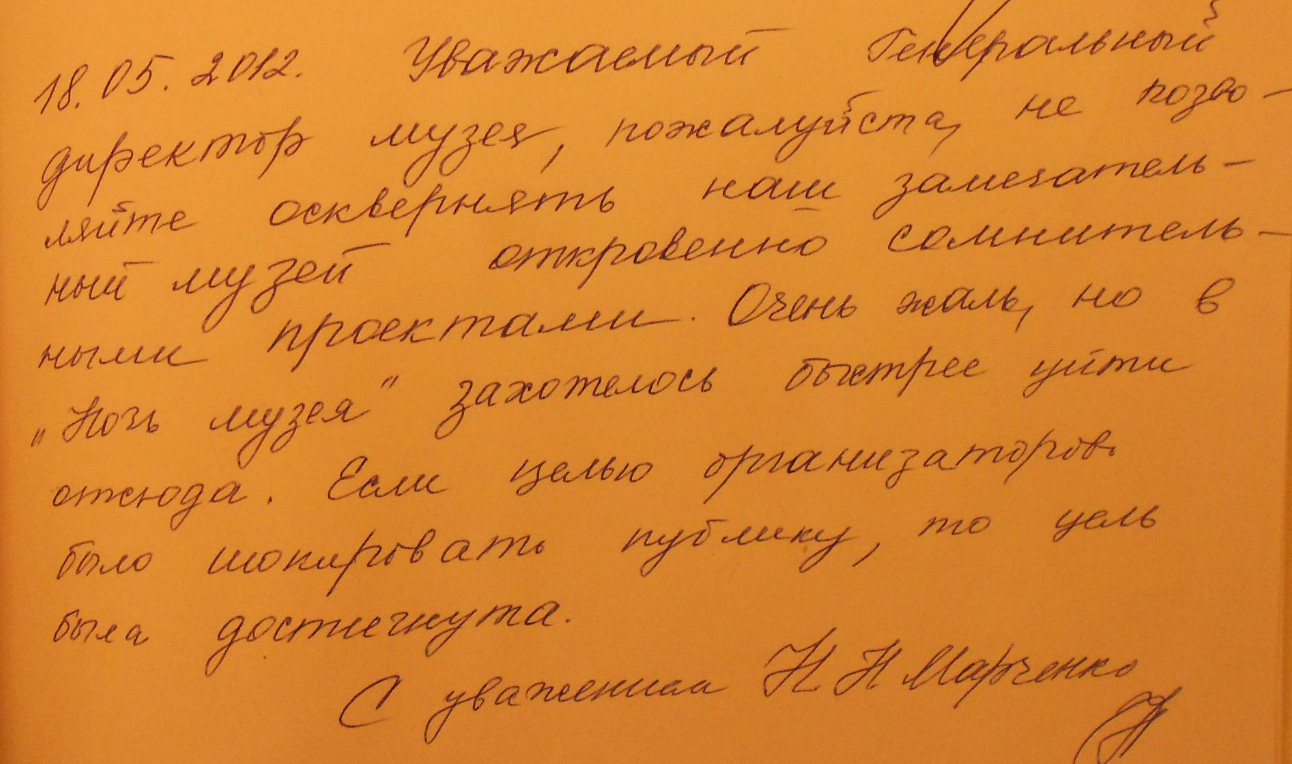 18.05.2012. Уважаемый Генеральный
директор музея, пожалуйста, не позво-
ляйте осквернять наш замечатель-
ный музей откровенно сомнитель-
ными проектами. Очень жаль, но в
„Ночь музея" захотелось быстрее уйти
отсюда. Если целью организаторов
было шокировать публику, то цель
была достигнута.
С уважением Н Н Марченко